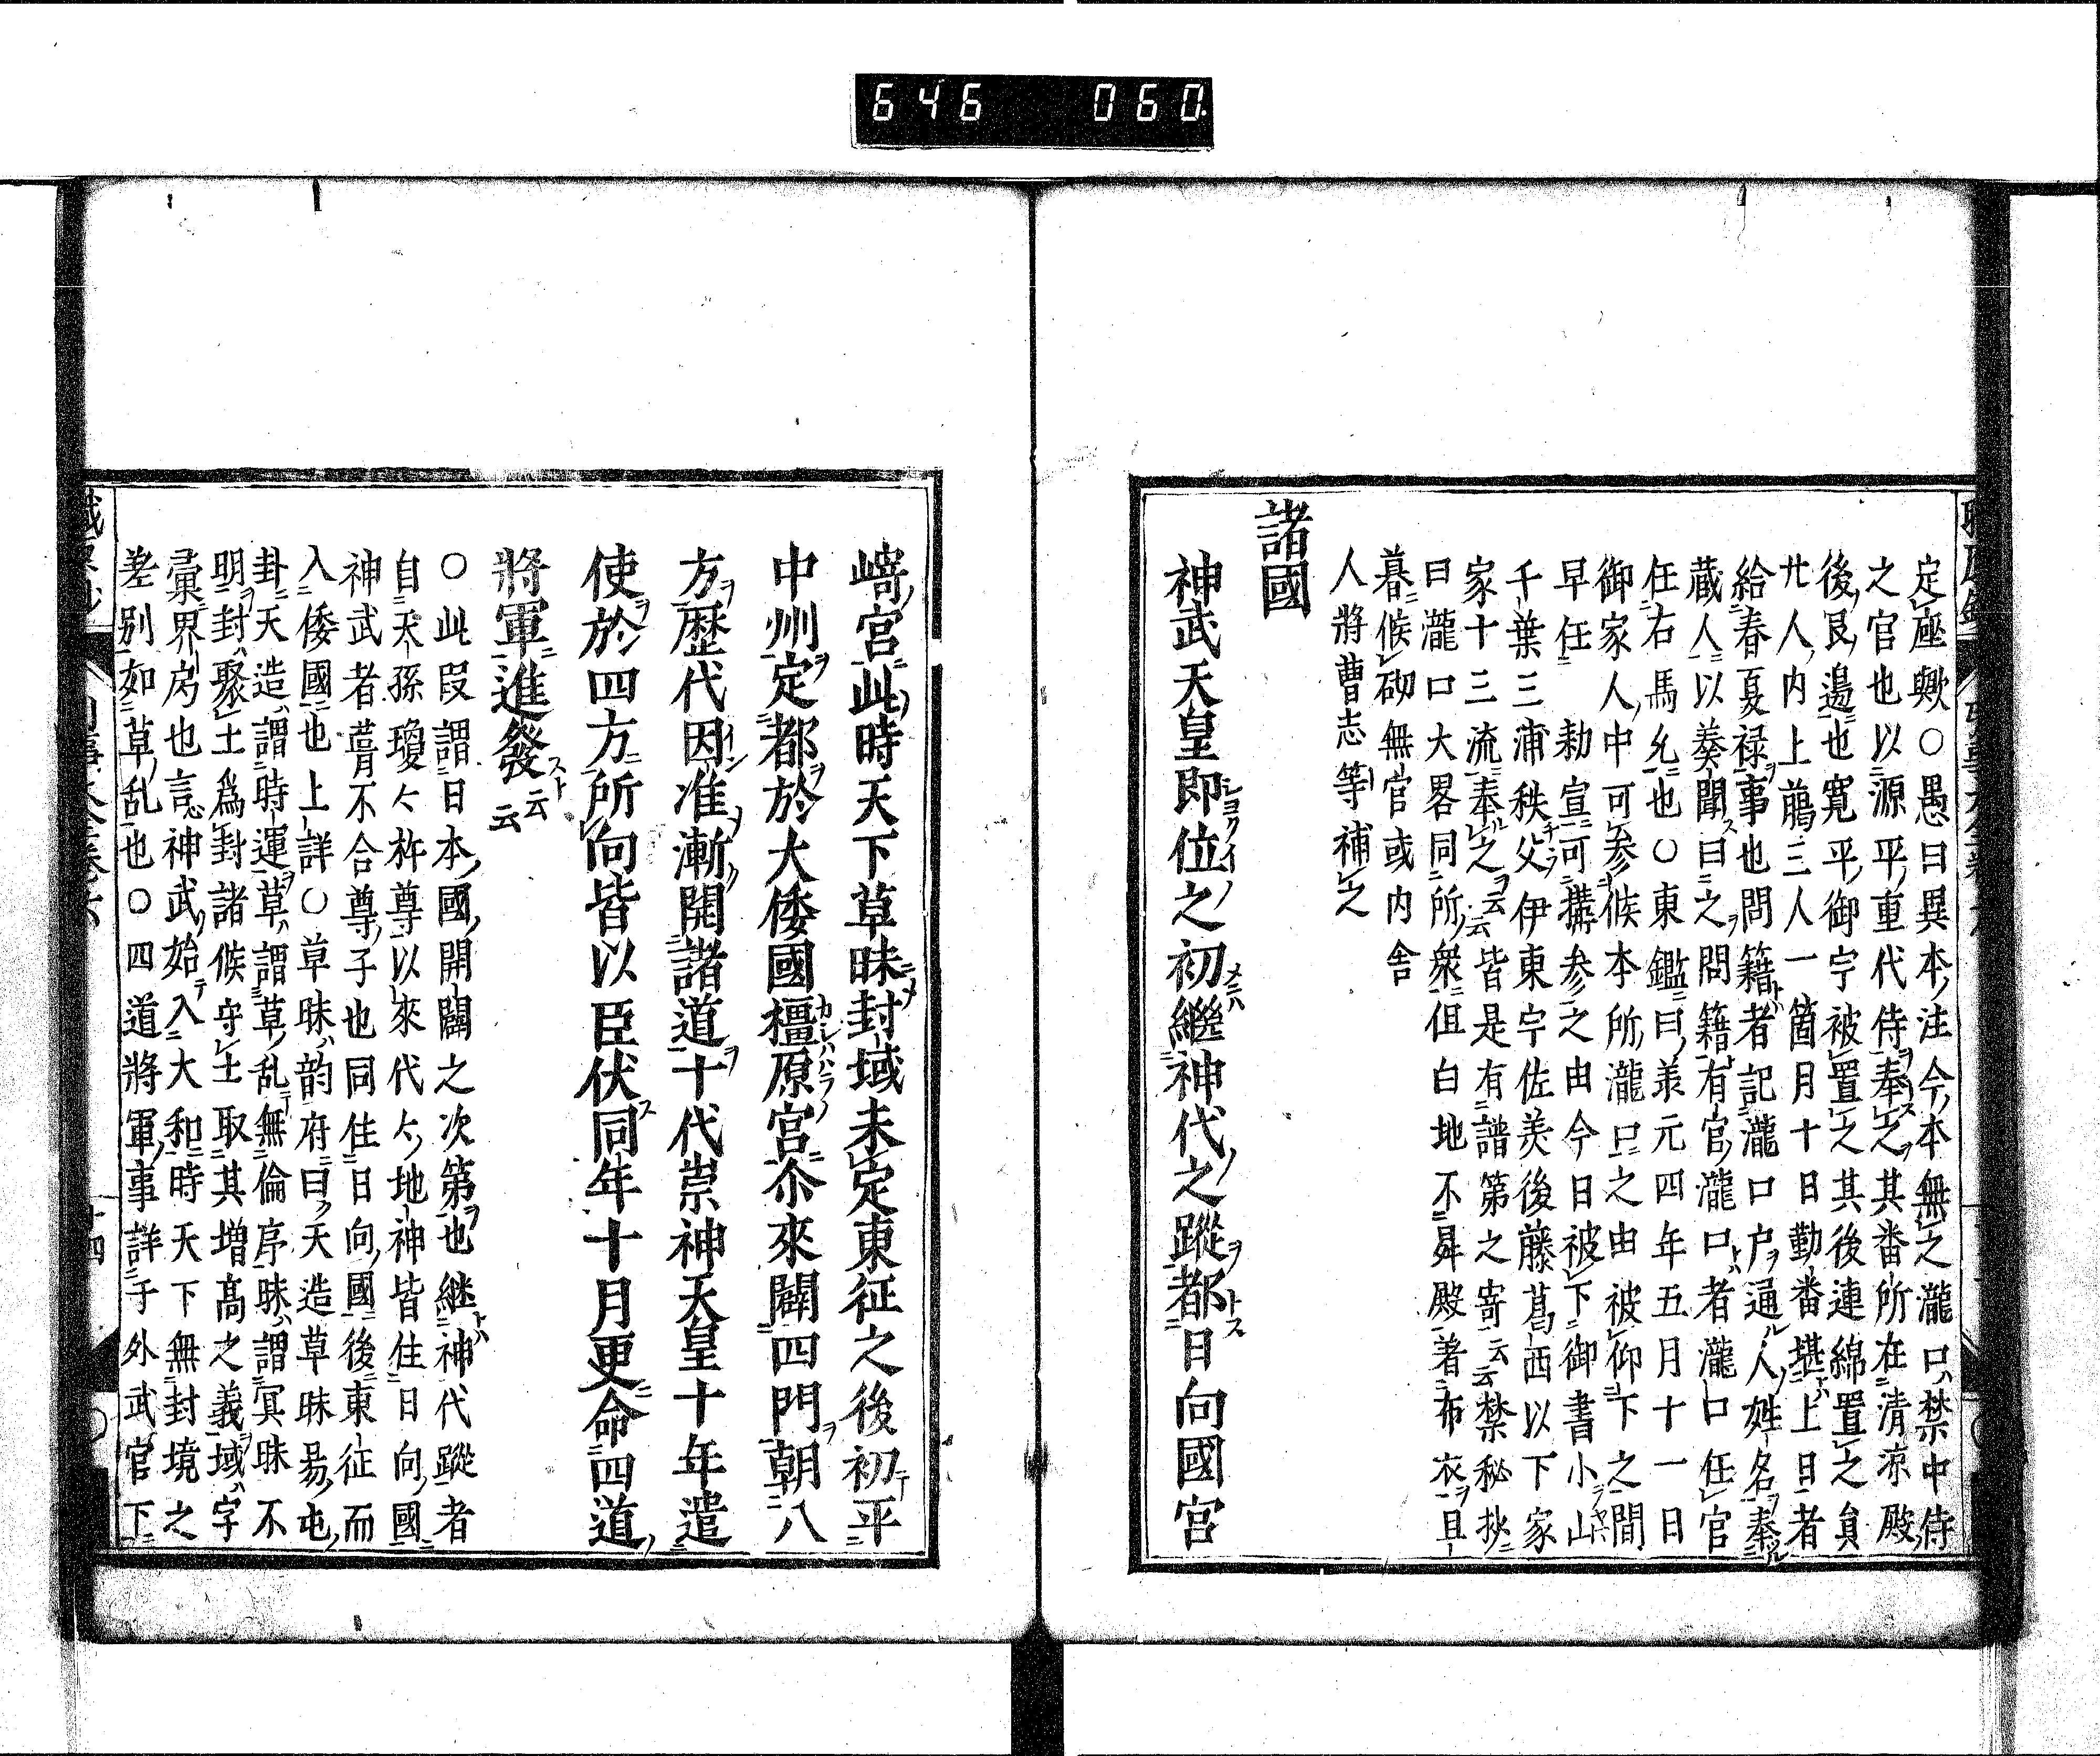 646 060
定座歟○愚曰異本ノ注今ノ本無之瀧口ハ禁中侍
之官也以源平ノ重代侍奉之其番所在清涼殿ノ
後ノ艮ノ邊也寛平ノ御宇被置之其後連綿置之負
廿人ノ内上﨟三人一箇月十日勤番堪上日者
給春夏禄事也問籍者記瀧口戸通人姓名奏
蔵人以奏聞曰之問籍有官瀧口者瀧口任官
任右馬允也○東鑑曰兼元四年五月十一日
御家人ノ中可参候本所瀧口之由被仰下之間
早任勅宣可搆参之由今日被下御書小山
千葉三浦秩父伊東宇佐美後藤葛西以下家
家十三流奉之云云皆是有譜第之寄云云禁秘抄
曰瀧口大畧同所ノ衆但白地不昇殿着布衣且
暮候砌無官或内舎
人將曹志等補之
諸國
神武天皇即位之初繼神代之蹤都日向國宮
﨑宮此時天下草昧封域未定東征之後初平
中州定都於大倭國橿原宮尒來闢四門朝八
方歴代因准漸開諸道十代崇神天皇十年遣
使於四方所向皆以臣伏同年十月更命四道
將軍進發云云
○此段謂日本ノ國ノ開闢之次第也継神代蹤者
自天孫瓊々杵尊以來代々地神皆住日向ノ國
神武者葺不合尊ノ子也同住日向ノ國後東征而
入倭國也上詳○草昧ハ韵府曰天造草昧易ノ屯ノ
卦天造ハ謂時運草ハ謂草乱無倫序昧ハ謂冥昧不
明封ハ聚土爲封諸候守土取其増髙之義域ハ字
彙界局也言神武始入大和時天下無封境之
差別如草乱也○四道將軍ノ事詳于外武官下